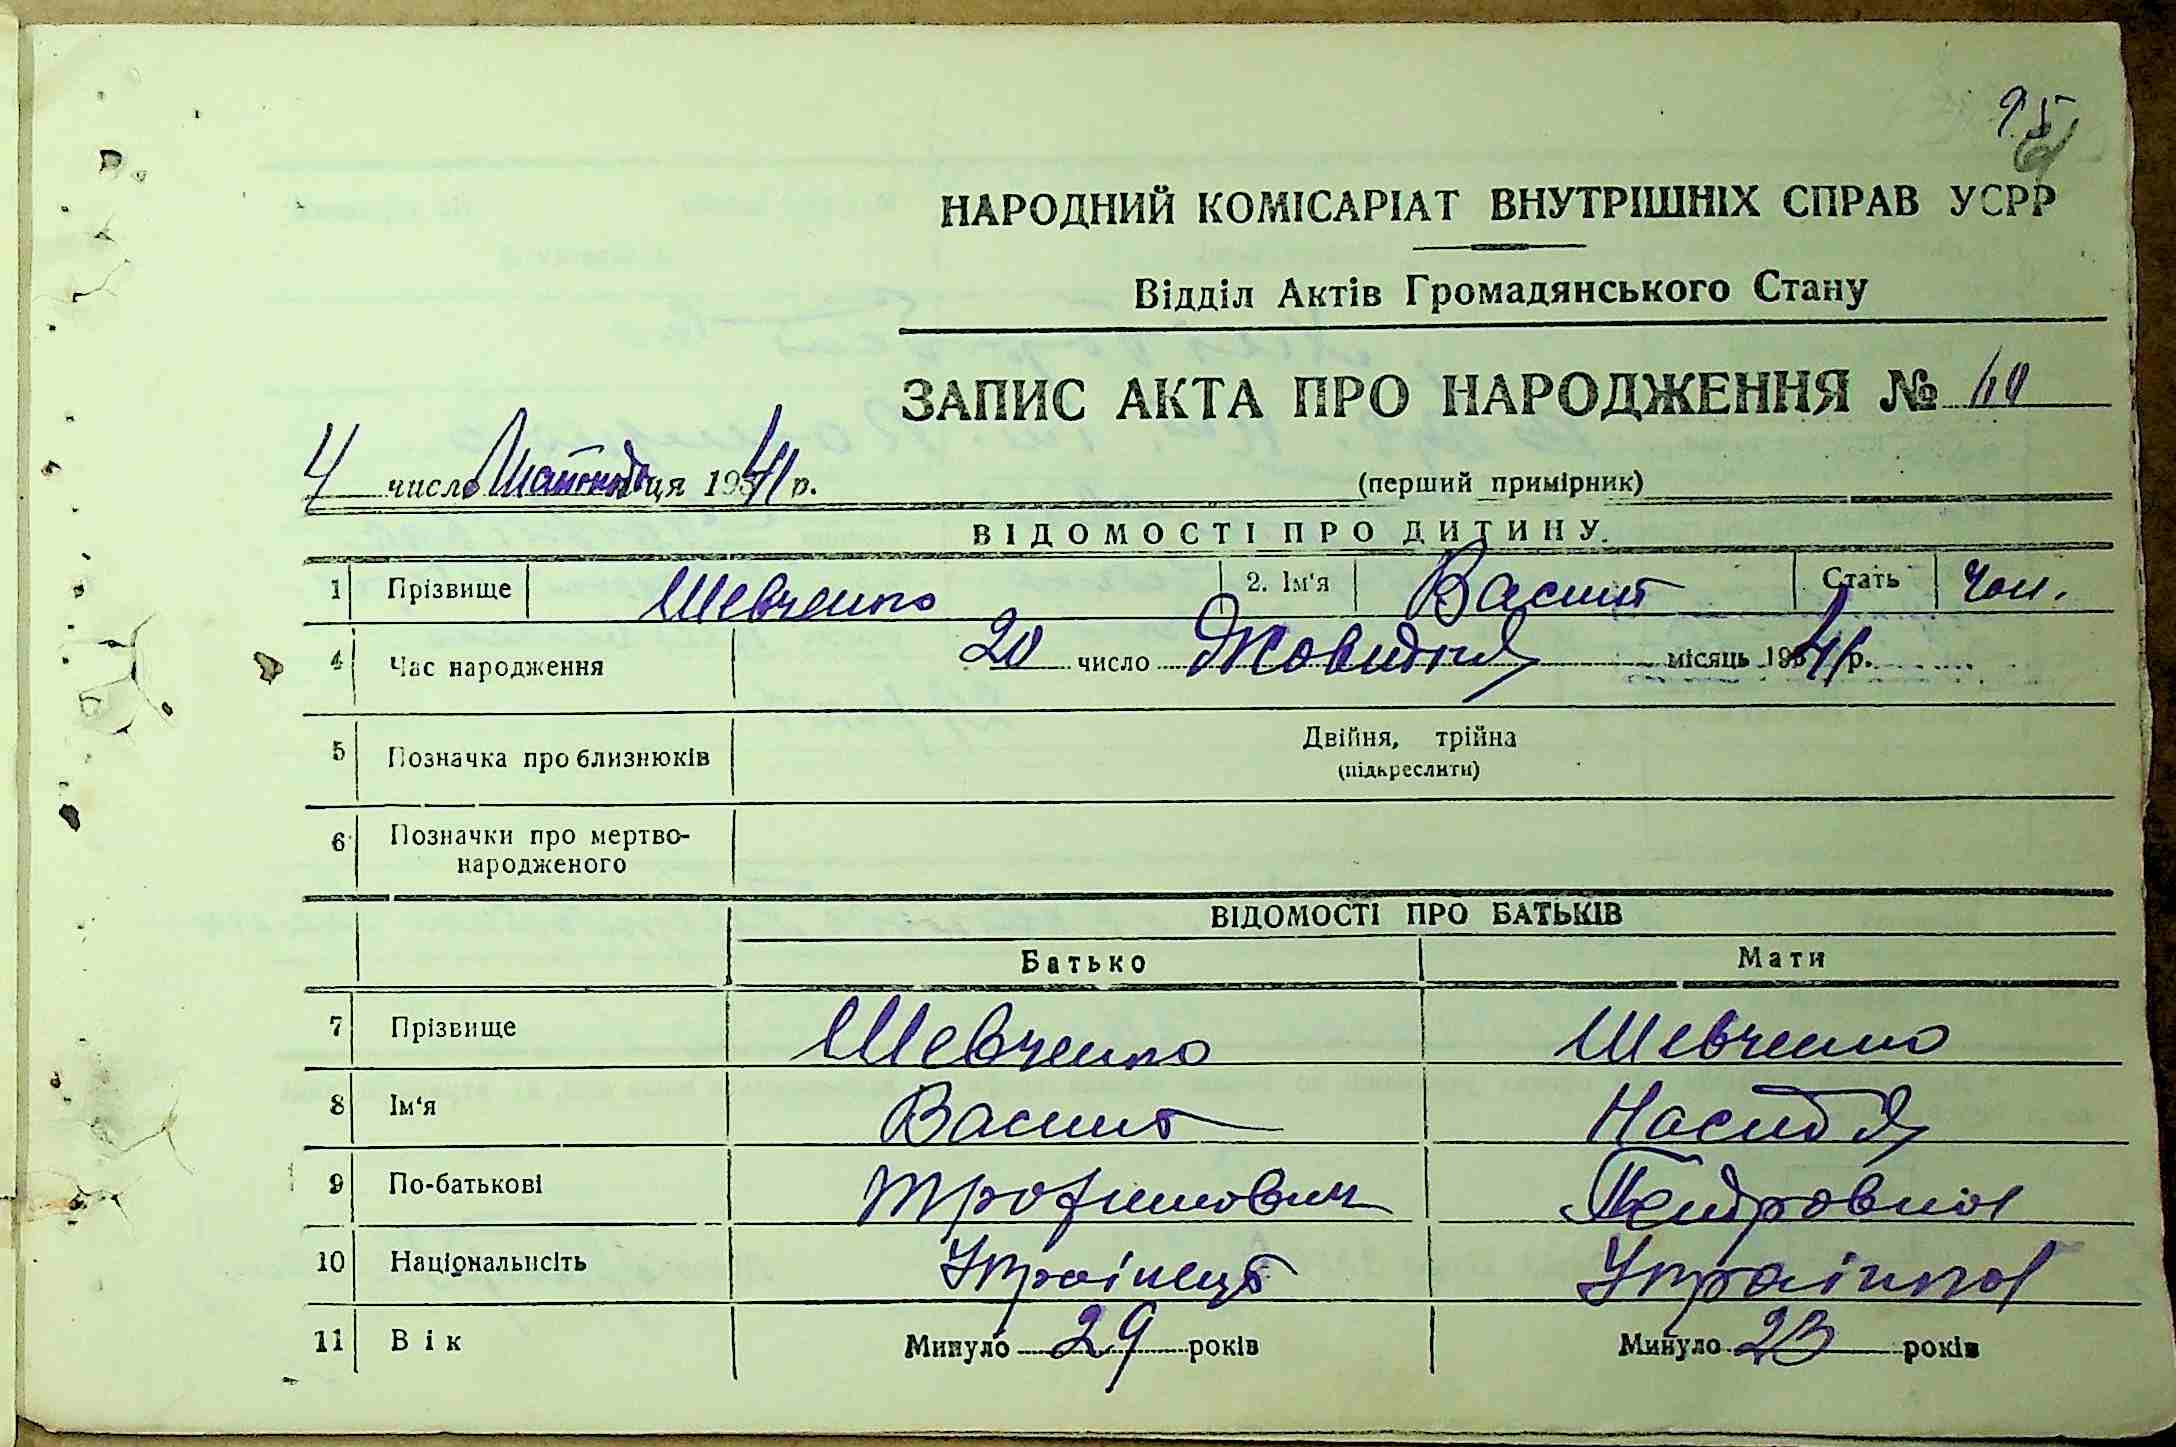 95
НАРОДНИЙ КОМІСАРІАТ ВНУТРІШНІХ СПРАВ УСРР
Відділ Актів Громадянського Стану
ЗАПИС АКТА ПРО НАРОДЖЕННЯ №
4 число ця 1941 р. (перший примірник)
ВІДОМОСТІ ПРО ДИТИНУ.
1 Прізвище Шевченко 2. Ім'я Василь Стать Чол.
4 Час народження 20 число Жовтня місяць 1941 р.
5 Позначка про близнюків Двійня, трійна
(підкреслити)
6 Позначки про мертво-
народженого
ВІДОМОСТІ ПРО БАТЬКІВ
Батько Мати
7 Прізвище Шевченко Шевченко
8 Ім'я Василь Настя
9 По-батькові Трофимович Петровна
10 Національність Українець Українка
11 Вік Минуло 29 років Минуло 23 років